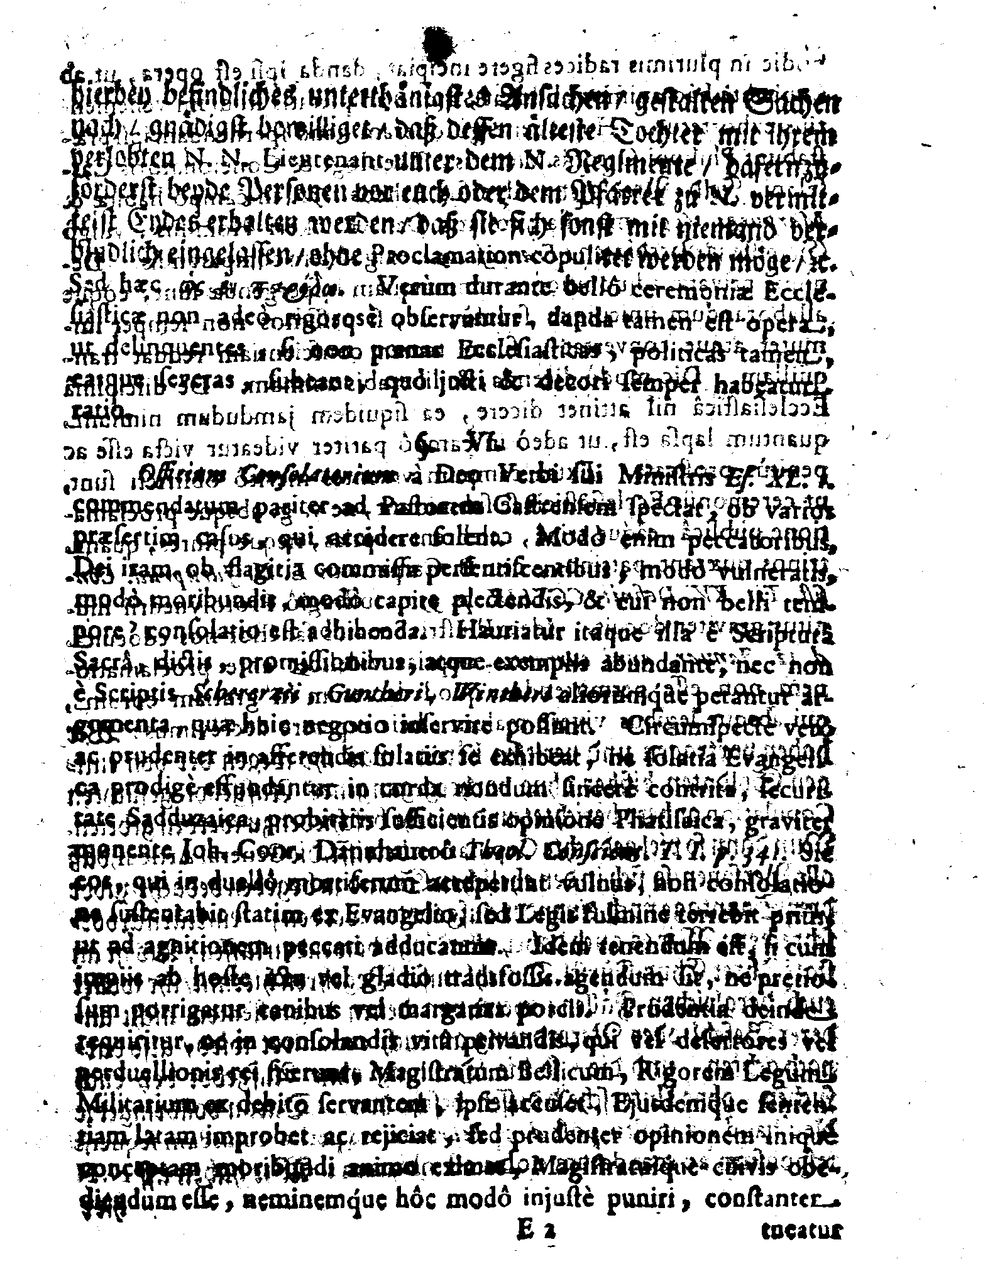 hierbey befindliches unterthänigstes Ansuchen / gestalten Sachen
nach / gnädigst bewilliget / daß dessen älteste Tochter mit ihrem
verlobten N. N. Lieutenant unter dem N. Regimente / dafern zu-
förderst beyde Personen vor euch oder dem Pfarrer zu N. vermit-
telst Eydes erhalten werden / daß sie sich sonst mit niemand ver-
bindlich eingelassen / ohne Proclamation copuliret werden möge / ꝛc.
Sed hæc ὡς ἐν παρόδῳ. Verùm durante bellô ceremoniæ Eccle-
siasticæ non adeò rigorosè observantur, danda tamen est opera,
ut delinquentes, si non pœnas Ecclesiasticas, politicas tamen,
easque severas, subeant, quò justi & decori semper habeatur
ratio.
§. VI.
Officium Consolatorium à Deo Verbi sui Ministris Es. XL. 1.
commendatum pariter ad Pastorem Castrensem spectat, ob varios
præsertim casus, qui accidere solent. Modò enim peccatoribus,
Dei iram ob flagitia commissa persentiscentibus, modò vulneratis,
modò moribundis, modò capite plectendis, & cui non belli tem-
pore? consolatio est adhibenda. Hauriatur itaque illa è Scripturâ
Sacrâ, dictis, promissionibus, atque exemplis abundante, nec non
è Scriptis Schererzii, Guntheri, aliorumque petantur ar-
gumenta, quæ huic negotio inservire possint. Circumspectè verò
ac prudenter in afferendis solatiis se exhibeat, ne solatia Evangeli-
ca prodigè effundantur in corda nondum sincerè contrita, securi-
tate Sadducaica, probitatis sufficientis opinione Pharisaica, graviter
monente Joh. Conr. Dannhauerô Theol. Conscient. T. I. p. 341. Sic
eos, qui in duellô mortiferum acceperunt vulnus, non consolatio-
ne sustentabis statim ex Evangelio, sed Legis fulmine terrebis prius,
ut ad agnitionem peccati adducantur. Idem tenendum est, si cum
impiis ab hoste ictu vel gladio transfossis agendum sit, ne pretio-
sum porrigatur canibus vel margarita porcis. Prudentia deinde
requiritur, ne in consolandis vitâ privandis, qui vel desertores vel
perduellionis rei fuerunt, Magistratum Bellicum, Rigorem Legum
Militarium ex debito servantem, ipse accuset, Ejusdemque senten-
tiam latam improbet ac rejiciat, sed prudenter opinionem iniquè
conceptam moribundi animo eximat, Magistratuique cuivis obe-
diendum esse, neminemque hôc modô injustè puniri, constanter
E 2 tueatur